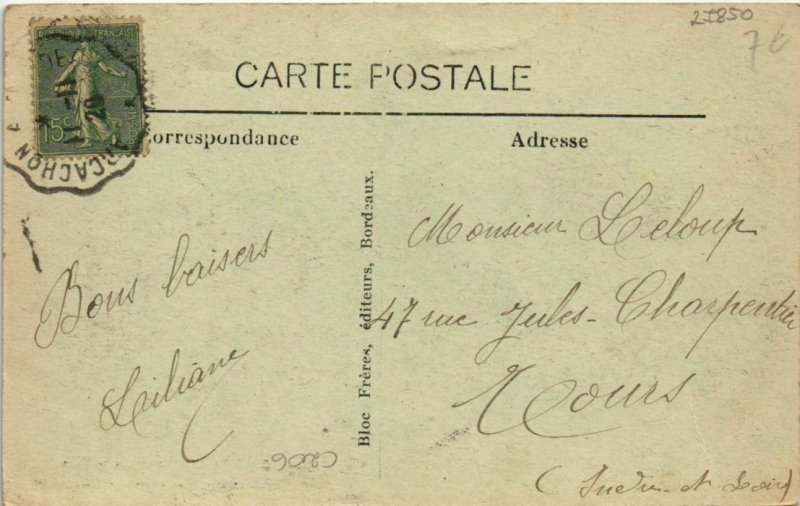 27850
7€
RÉPUBLIQUE FRANÇAISE
15c
POSTES
ARCACHON
CARTE POSTALE
Correspondance
Adresse
Bons baisers
Liliane
Bloc Frères, éditeurs, Bordeaux.
Monsieur Leloup
47 rue Jules-Charpentier
Tours
(Indre-et-Loire)
C206